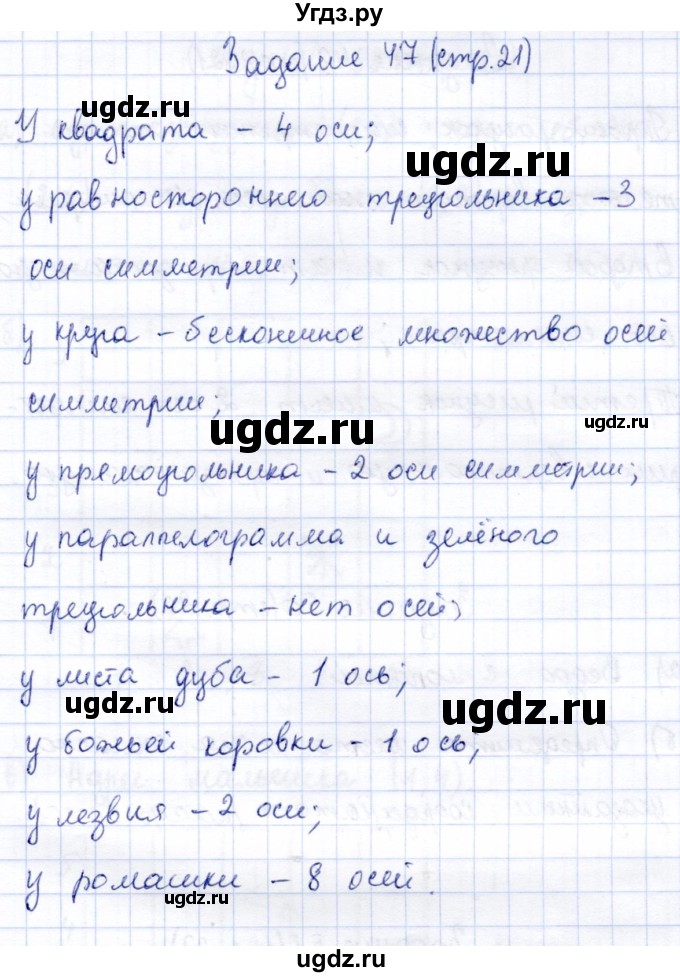 Угдз.ру
Задание 47 (стр. 21)
У квадрата - 4 оси;
ugdz.ru
ugdz.ru
у равностороннего треугольника - 3
оси симметрии;
у круга - бесконечное множество осей
симметрии;
ugdz.ru
ugdz.ru
у прямоугольника - 2 оси симметрии;
у параллелограмма и зелёного
треугольника - нет осей;
у листа дуба - 1 ось;
ugdz.ru
ugdz.ru
у божьей коровки - 1 ось;
у лезвия - 2 оси;
у ромашки - 8 осей.
ugdz.ru
ugdz.ru